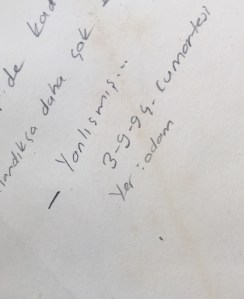 de kad
landıkça daha çok
- Yanlışmış...
3-9-94. Cumartesi
Yer: odam